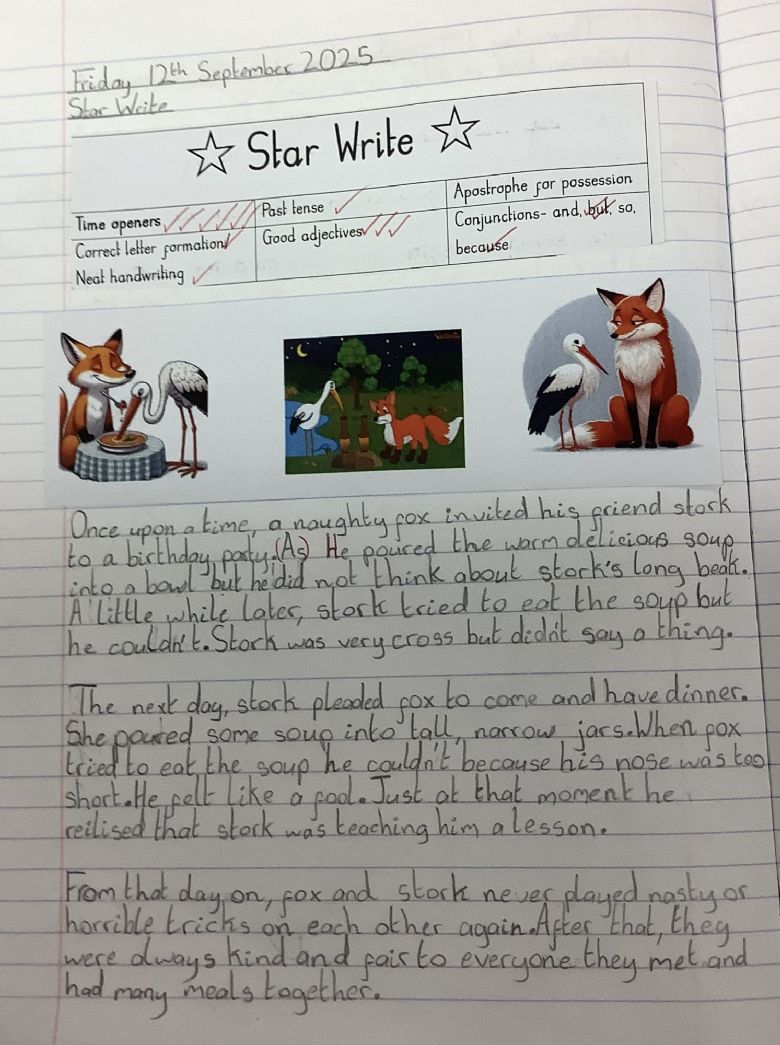 Friday 12th September 2025
Star Write
Star Write
Time openers
Past tense
Apostrophe for possession
Correct letter formation
Good adjectives
Conjunctions- and, but, so,
because
Neat handwriting
Once upon a time, a naughty fox invited his friend stork
to a birthday party. (As) He poured the warm delicious soup
into a bowl but he did not think about stork's long beak.
A little while later, stork tried to eat the soup but
he couldn't. Stork was very cross but didn't say a thing.
The next day, stork pleaded fox to come and have dinner.
She poured some soup into tall, narrow jars. When fox
tried to eat the soup he couldn't because his nose was too
short. He felt like a fool. Just at that moment he
reilised that stork was teaching him a lesson.
From that day on, fox and stork never played nasty or
horrible tricks on each other again. After that, they
were always kind and fair to everyone they met and
had many meals together.